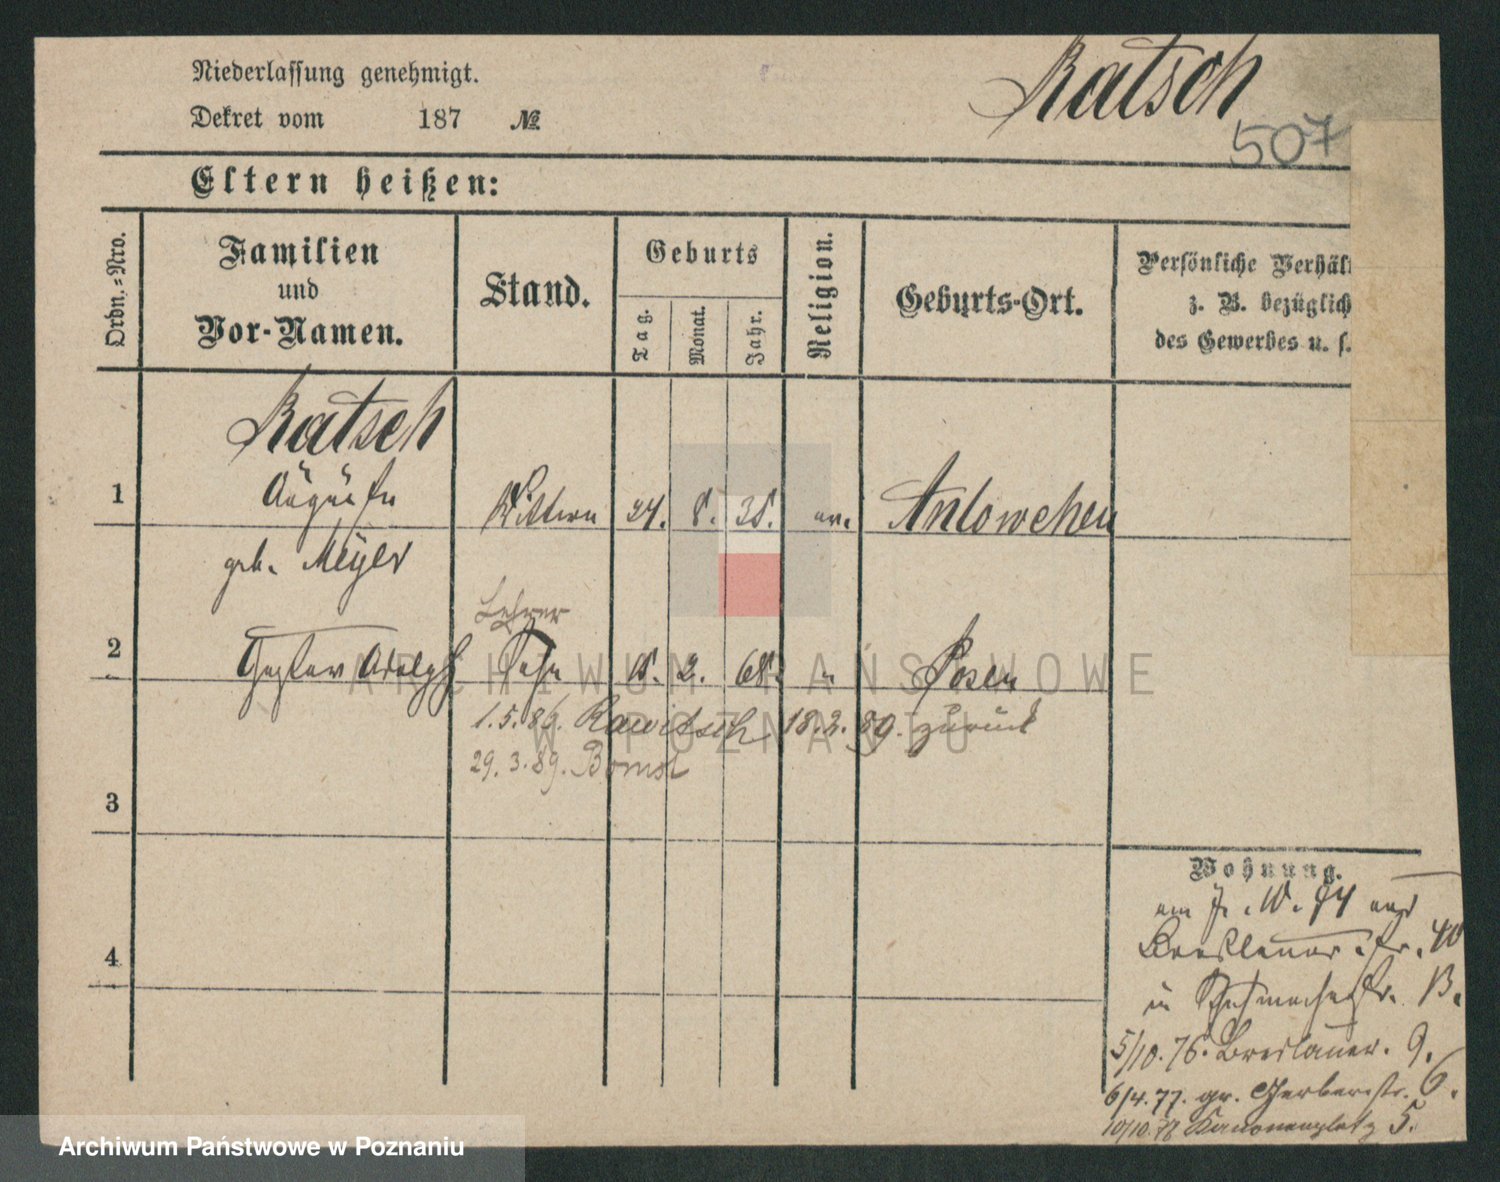 Niederlassung genehmigt.
Dekret vom 187 №
Ratsch
507
Eltern heißen:
Ordn.-Nro.
Familien
und
Vor-Namen.
Stand.
Geburts
Tag.
Monat.
Jahr.
Religion.
Geburts-Ort.
Persönliche Verhäl
z. B. bezüglich
des Gewerbes u. s.
Ratsch
1 Auguste Wittwe 24. 8. 38. ev. Antowchen
geb. Meyer
Lehrer
2 Gustav Adolph Sohn 18. 2. 68. " Posen
1.5.86. Rawitsch 18.2.89. zurück
29.3.89. Bomst
3
4
Wohnung.
am 7. 10. 74 aus
Breslauer str. 40
in Schuhmacherstr. 13.
5/10.76. Breslauer. 9.
6/4.77. gr. Gerberstr. 6.
10/10.78 Kanonenplatz 5.
ARCHIWUM PAŃSTWOWE
W POZNANIU
Archiwum Państwowe w Poznaniu